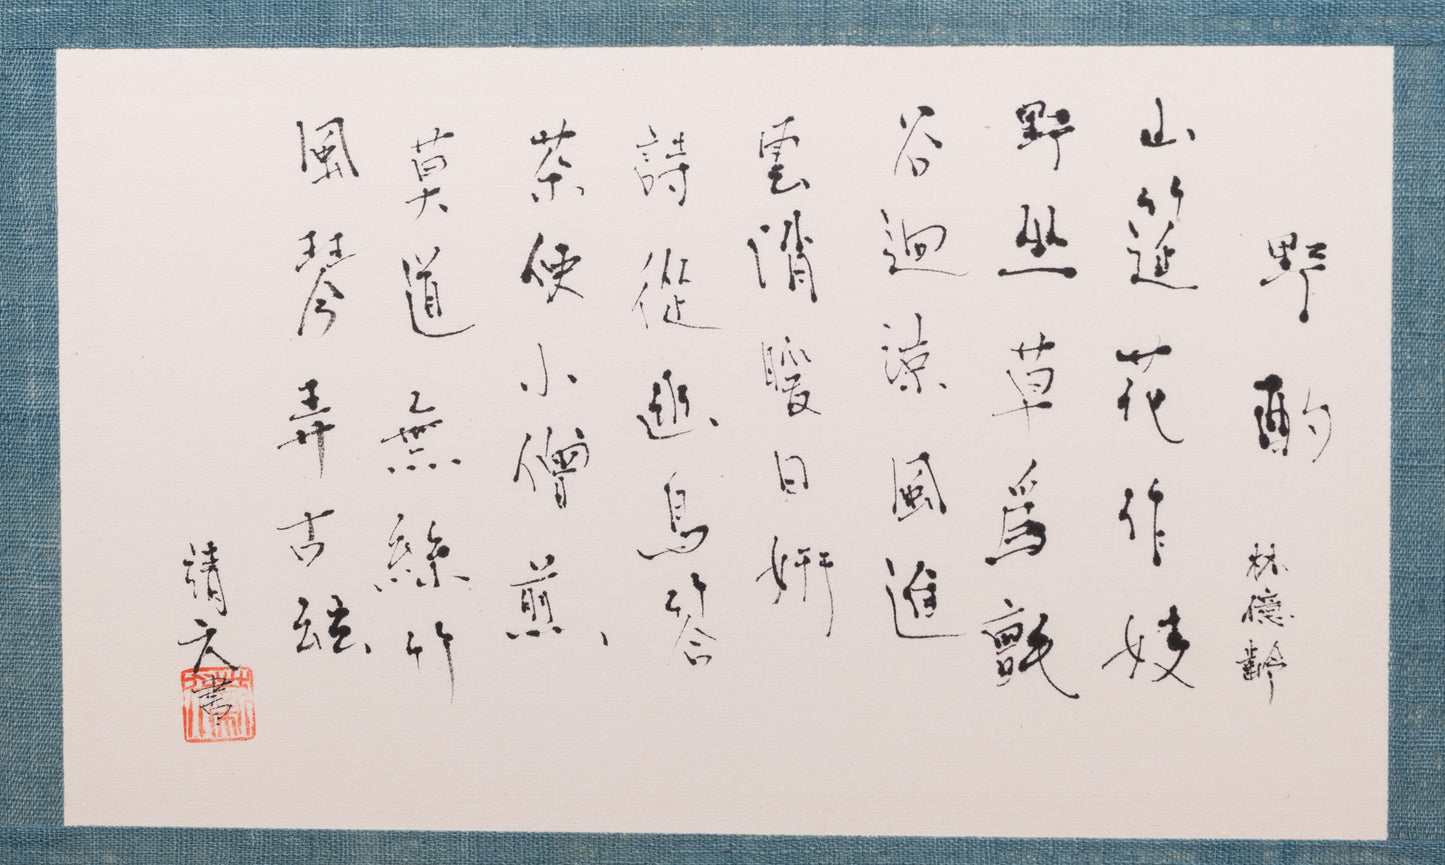 野酌
林億齡
山筵花作妓
野坐草爲氈
谷迥涼風進
雲消暖日妍
詩從幽鳥答
茶使小僧煎
莫道無絲竹
風琴弄古絃
靖文書